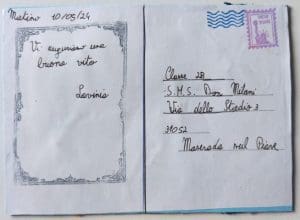 Mestrino 10/05/24
Vi auguriamo una
buona vita
Lavinia
Classe 2B
S.M.S. Don Milani
Via dello Stadio 3
31052
Maserada sul Piave